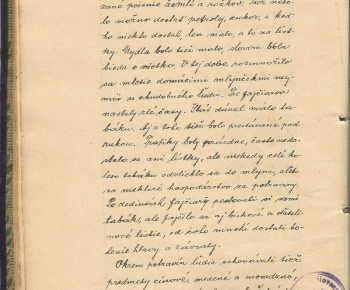 zané pečenie žemlí a rožkov. Nož nebo-
lo možno dostať petrolej, cukor, a keď
ho niekto dostal, len málo, a to na líst-
ky. Mydla bolo tiež málo, slovom bola
bieda o všetko. V tej dobe rozmnožilo
sa mletie domácimi mlynčekmi naj-
mä u chudobného ľudu. Pre fajčiarov
nastaly zlé časy. Štát dával málo ta-
báku. Aj z toho tiež bolo predávané pod
rukou. Trafiky boly povädne, často nedo-
stalo sa ani lístky, ale niekedy celé ko-
leso tabáku odvlieklo sa do mlyna, alebo
za niektoré hospodárstvo za potraviny.
Po dedinách fajčiari pestovali si sami
tabák, ale fajčilo sa aj bukové a
nové lístie, od čoho mnohí dostali bo-
lenie hlavy a závraty.
Okrem potravín ľudia schovávali tiež
predmety cínové, medené a mosadzné,